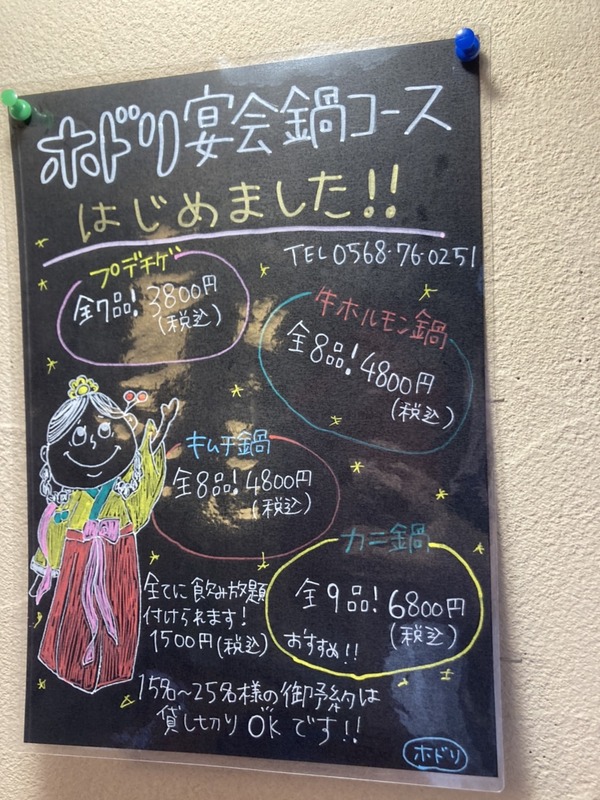 ホドリ宴会鍋コース
はじめました!!
TEL 0568・76・0251
プデチゲ
全7品! 3800円
(税込)
牛ホルモン鍋
全8品! 4800円
(税込)
キムチ鍋
全8品! 4800円
(税込)
カニ鍋
全9品! 6800円
(税込)
おすすめ!!
全てに飲み放題
付けられます!
1500円(税込)
15名~25名様の御予約は
貸し切りOKです!!
ホドリ